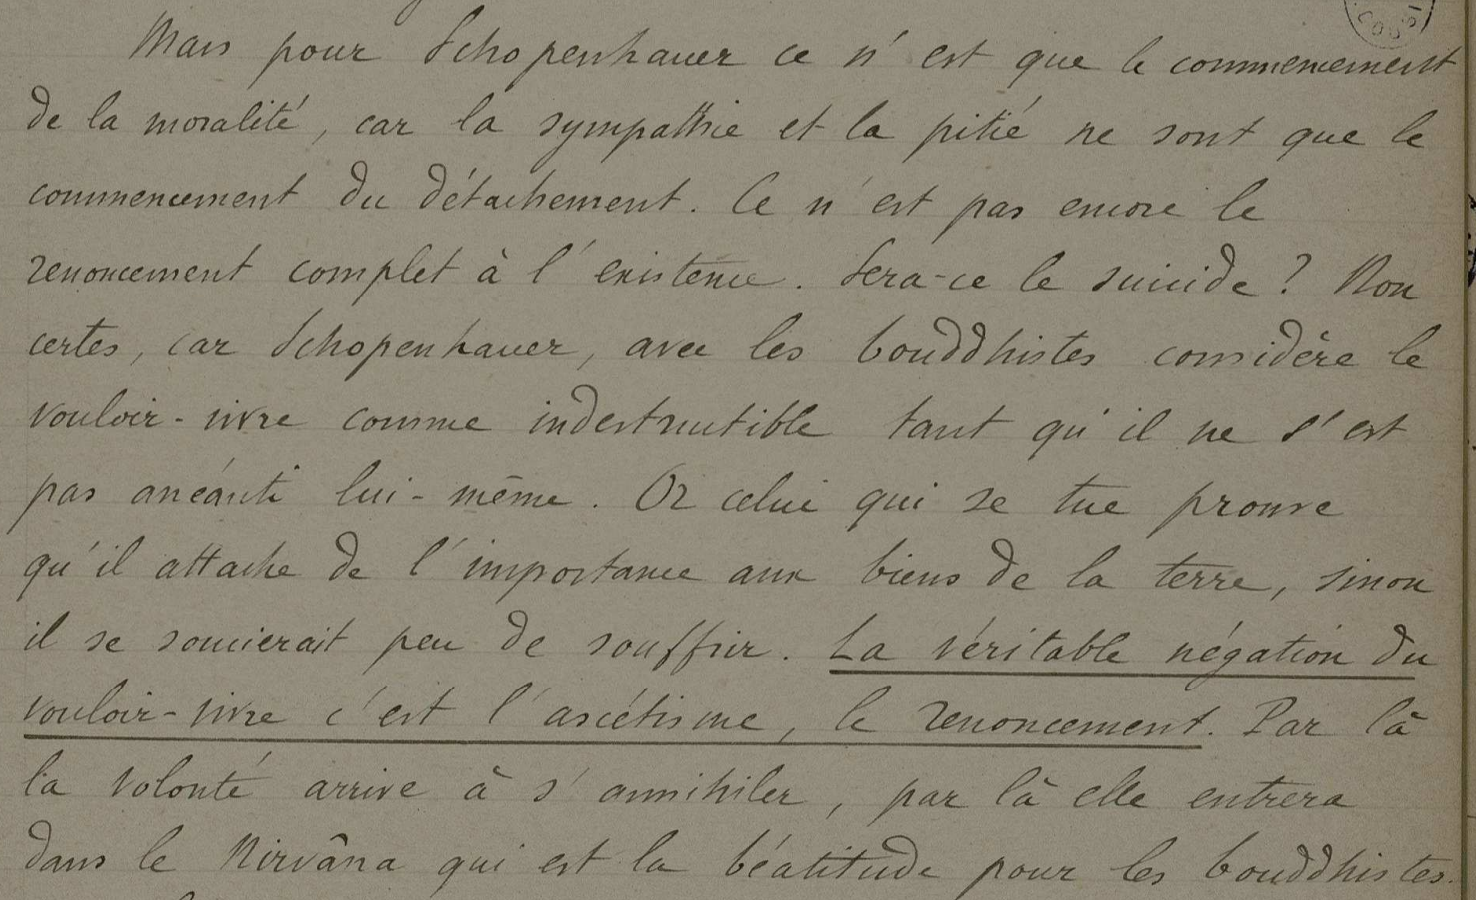 Mais pour Schopenhauer ce n'est que le commencement
de la moralité, car la sympathie et la pitié ne sont que le
commencement du détachement. Ce n'est pas encore le
renoncement complet à l'existence. Sera-ce le suicide ? Non
certes, car Schopenhauer, avec les bouddhistes considère le
vouloir-vivre comme indestructible tant qu'il ne s'est
pas anéanti lui-même. Or celui qui se tue prouve
qu'il attache de l'importance aux biens de la terre, sinon
il se soucierait peu de souffrir. La véritable négation du
vouloir-vivre c'est l'ascétisme, le renoncement. Par là
la volonté arrive à s'annihiler, par là elle entrera
dans le Nirvâna qui est la béatitude pour les bouddhistes.